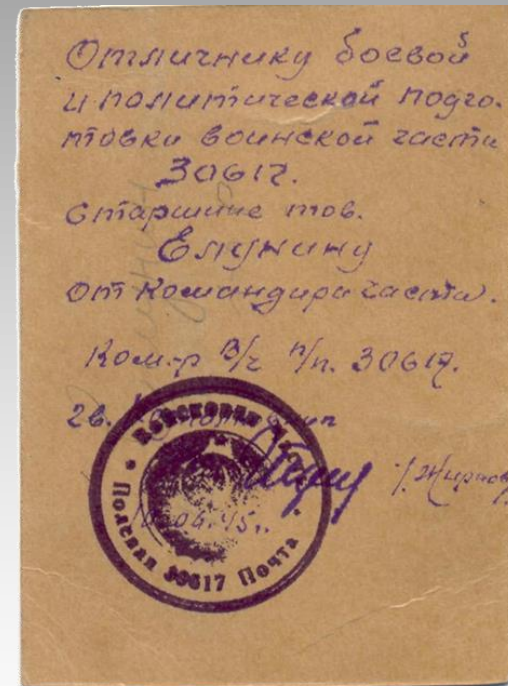 Отличнику боевой
и политической подго-
товки воинской части
30617.
Старшине тов.
Елунину
от командира части.
Ком-р в/ч п/п. 30617.
Гв.
/Жирнов/
06.45г.
Войсковая
Полевая 30617 Почта